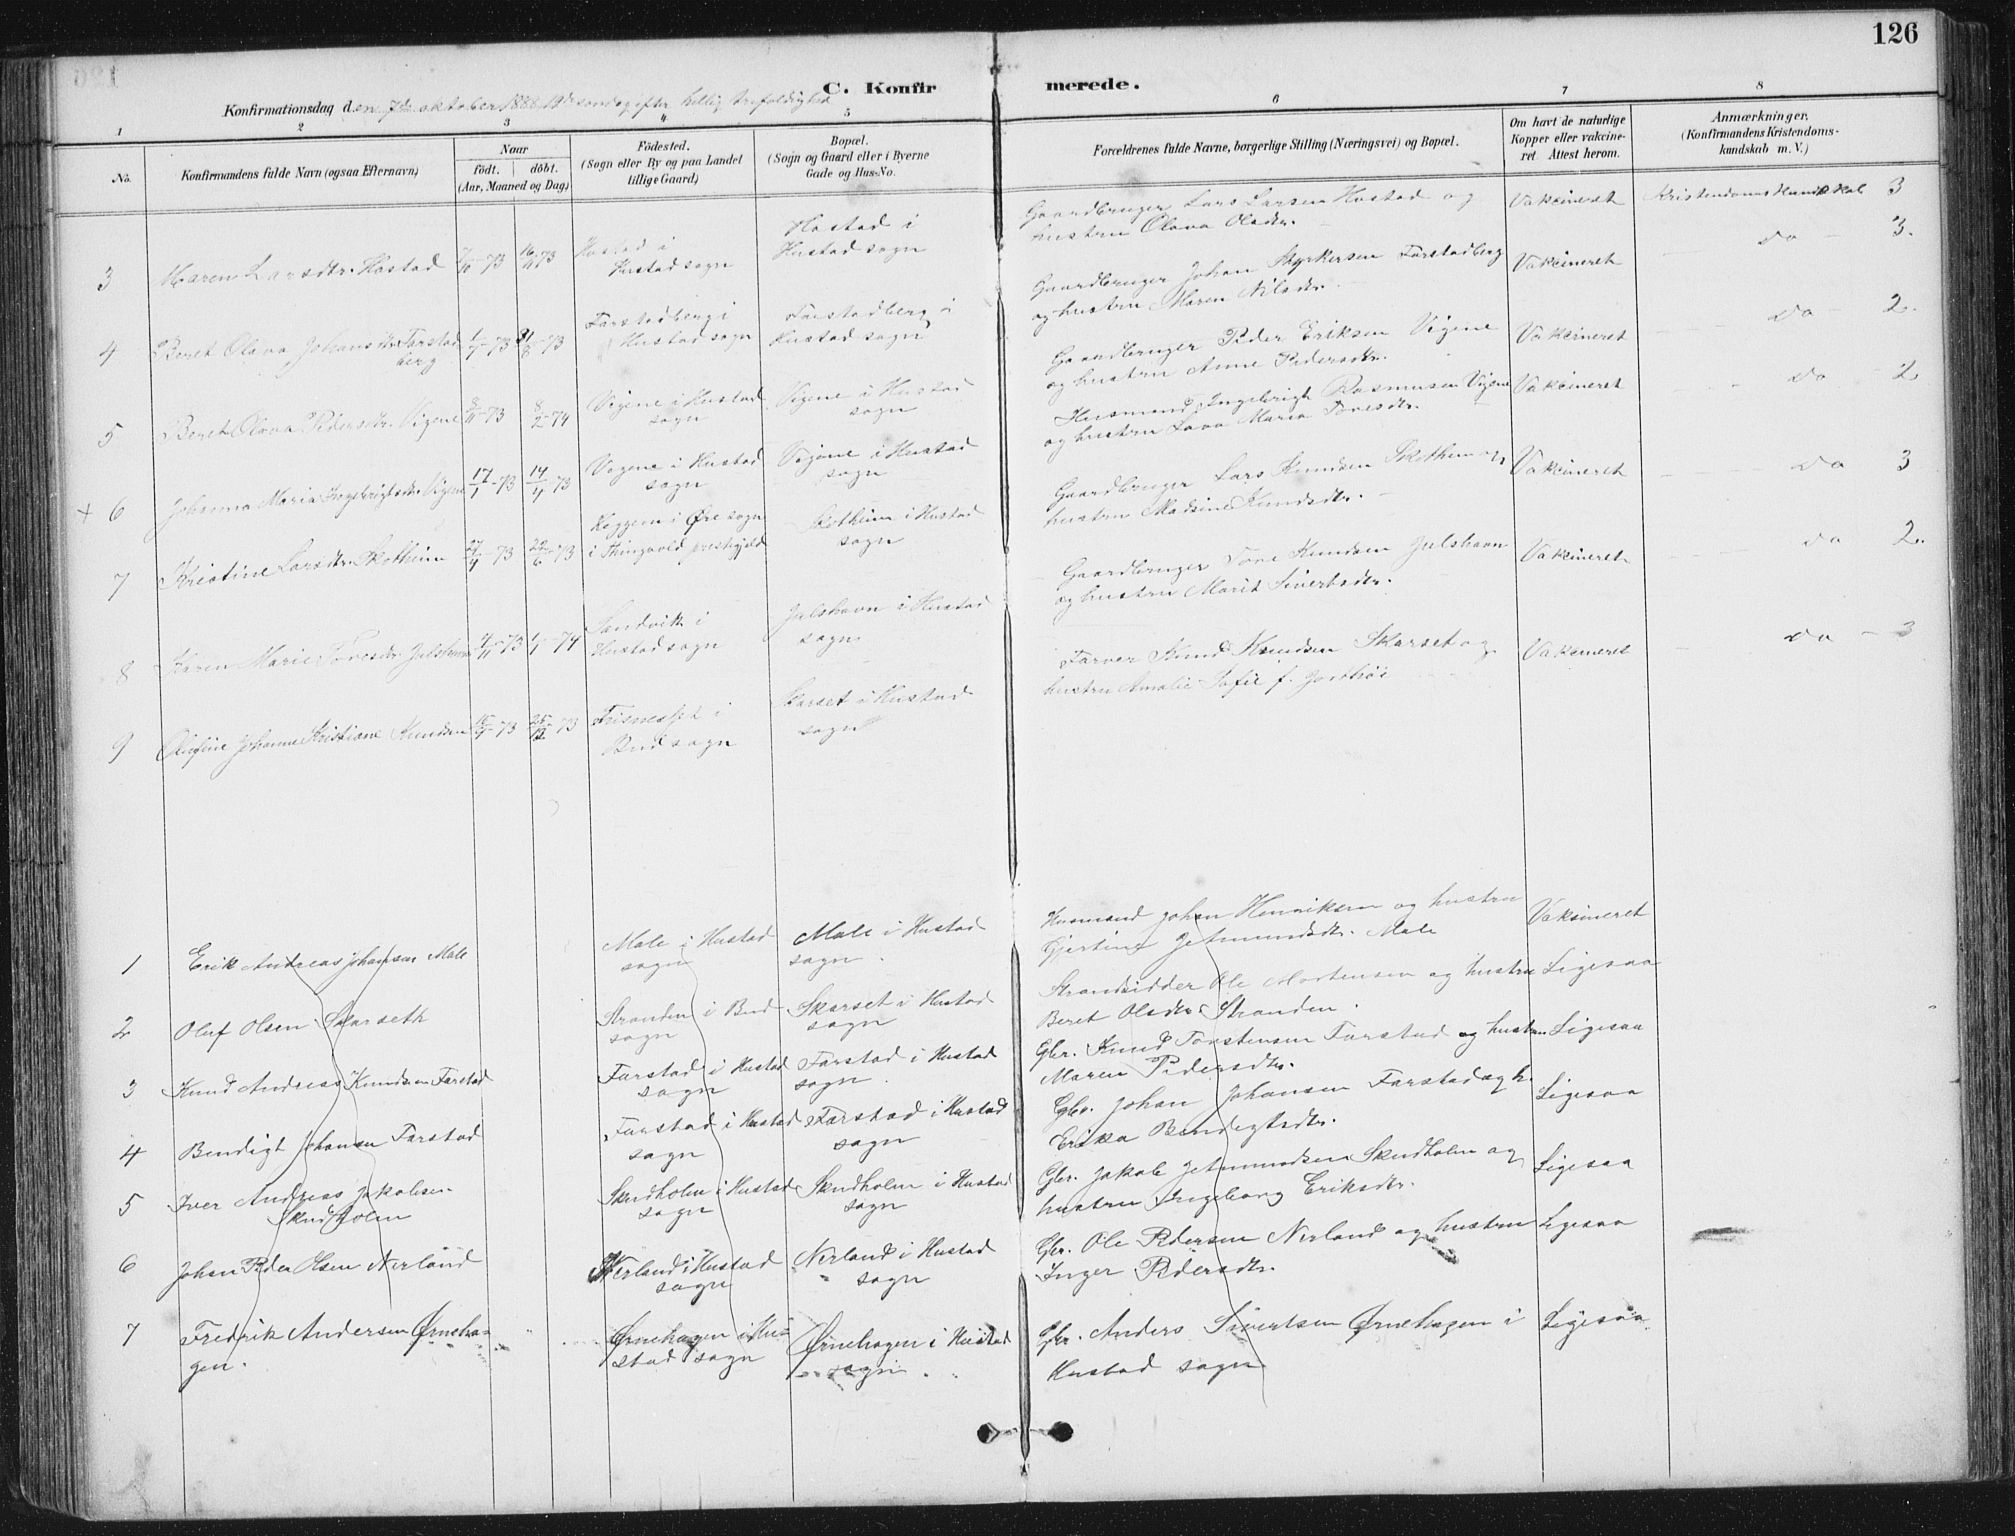 126
C. Konfirmerede.
Konfirmationsdag den 7de oktober 1888 19de søndag efter hellig trefoldighed
1 2 3 4 5 6 7 8
No.
Konfirmandens fulde Navn (ogsaa Efternavn)
Naar
født. døbt.
(Aar, Maaned og Dag)
Fødested.
(Sogn eller By og paa Landet
tillige Gaard)
Bopæl.
(Sogn og Gaard eller i Byerne
Gade og Hus-No.
Forældrenes fulde Navne, borgerlige Stilling (Næringsvei) og Bopæl.
Om havt de naturlige
Kopper eller vakcine-
ret. Attest herom.
Anmærkninger.
(Konfirmandens Kristendoms-
kundskab m. V.)
3 Maren Larsdtr. Hostad 7/10-73 16/11 73
Hostad i
Hustad sogn
Hostad i
Hustad sogn
Gaardbruger Lars Larsen Hostad og
hustru Olava Olsdtr.
Vakcineret
Kristendomskundskab 3
4 Beret Olava Johansdtr. Farstad
berg
1/7-73 31/8-73
Farstadberg i
Hustad sogn
Farstadberg i
Hustad sogn
Gaardbruger Johan Styrkersen Farstadberg
og hustru Maren Nilsdtr.
Vakcineret
do - 3.
5 Beret Olava Pedersdtr. Vigene 8/11-73 8/2-74
Vigene i Hustad
sogn
Vigene i Hustad
sogn
Gaardbruger Peder Eriksen Vigene
og hustru Anne Pedersdtr.
Vakcineret
do - 2.
+ 6 Johanna Maria Ingebrigtsdtr. Vigene 17/1-73 14/4-73
Vegene i Hustad
sogn
Vigene i Hustad
sogn
Husmand Ingebrigt Rasmusen Vigene
og hustru Lava Maria Tovesdtr.
Vakcineret
do - 2
7 Kristine Larsdtr. Skotheim 27/4-73 22/6-73
i Øre sogn
i Thingvold
Skotheim i Hustad
sogn
Gaardbruger Lars Knudsen Skotheim og
hustru Madsine Knudsdtr.
Vakcineret
do 3
8 Karen Marie Tovesdtr. Julshavn 4/11-73 1/1-74
Sandvik i
Hustad sogn
Julshavn i Hustad
sogn
Gaardbruger Tove Knudsen Julshavn
og hustru Marit Sivertsdtr.
Vakcineret
do 2.
9 Olufine Johanne Kristiane Knudsen
Bud sogn
Skarset i Hustad
sogn
Farver Knud Knudsen Skarset og
hustru Amalie Sofie f.
Vakcineret
do - 3
1 Erik Andreas Johansen Male
Male i Hustad
sogn
Male i Hustad
sogn.
Husmand Johan Henriksen og hustru
Gjertine Jetmundsdtr. Male
Vaksineret
2 Oluf Olsen Skarseth
Stranden i Bud
sogn
Skarset i Hustad
sogn
Strandsidder Ole Mortensen og hustru
Beret Olsdtr. Stranden.
Ligesaa
3 Knud Andreas Knudsen Farstad
Farstad i Hustad
sogn
Farstad i Hustad
sogn.
Gbr. Knud Torstensen Farstad og hustru
Maren Pedersdtr.
Ligesaa
4 Bendigt Johansen Farstad
Farstad i Hustad
sogn
Farstad i Hustad
sogn
Gbr. Johan Johansen Farstad og h.
Erika Bendigtsdtr.
Ligesaa
5 Iver Andreas Jakobsen
Skudholm
Skudholm i Hustad
sogn
Skudholm i Hustad
sogn
Gbr. Jakob Jetmundsen Skudholm og
hustru Ingeborg Eriksdtr.
Ligesaa
6 Johan Peder Olsen Nerland
Nerland i Hustad
sogn
Nerland i Hustad
sogn
Gbr. Ole Pedersen Nerland og hustru
Inger Pedersdtr.
Ligesaa
7 Fredrik Andersen Ørneha-
gen.
Ørnehagen i Hu-
stad sogn
Ørnehagen i Hustad
sogn.
Gbr. Anders Sivertsen Ørnehagen i
Hustad sogn
Ligesaa